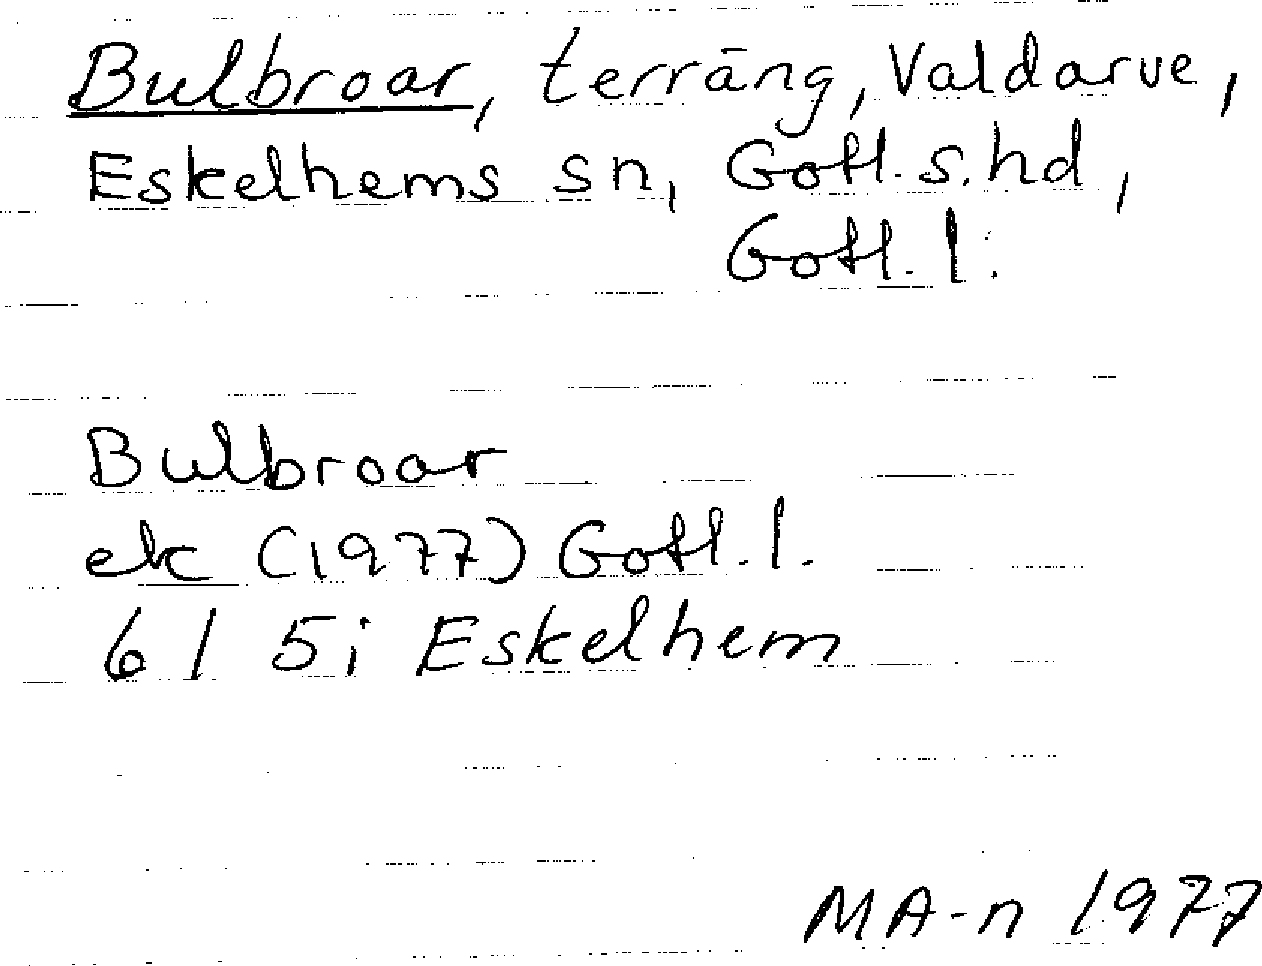 Bulbroar, terräng, Valdarve,
Eskelhems sn, Gotl. s. hd,
Gotl. l.
Bulbroar
ek (1977) Gotl. l.
6 I 5i Eskelhem
MA-n 1977